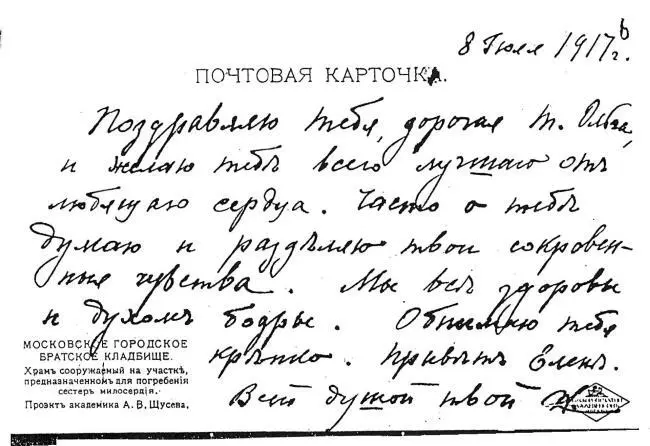 8 Июля 1917 г.
ПОЧТОВАЯ КАРТОЧКА.
Поздравляю тебя, дорогая т. Ольга,
и желаю тебѣ всего лучшаго отъ
любящаго сердца. Часто о тебѣ
думаю и раздѣляю твои сокровен-
ныя чувства. Мы всѣ здоровы
и духомъ бодры. Обнимаю тебя
крѣпко. Привѣтъ Еленѣ.
Всей душой твой
МОСКОВСКОЕ ГОРОДСКОЕ
БРАТСКОЕ КЛАДБИЩЕ.
Храмъ сооружаемый на участкѣ,
предназначенномъ для погребенія
сестеръ милосердія.
Проэктъ академика А. В. Щусева.